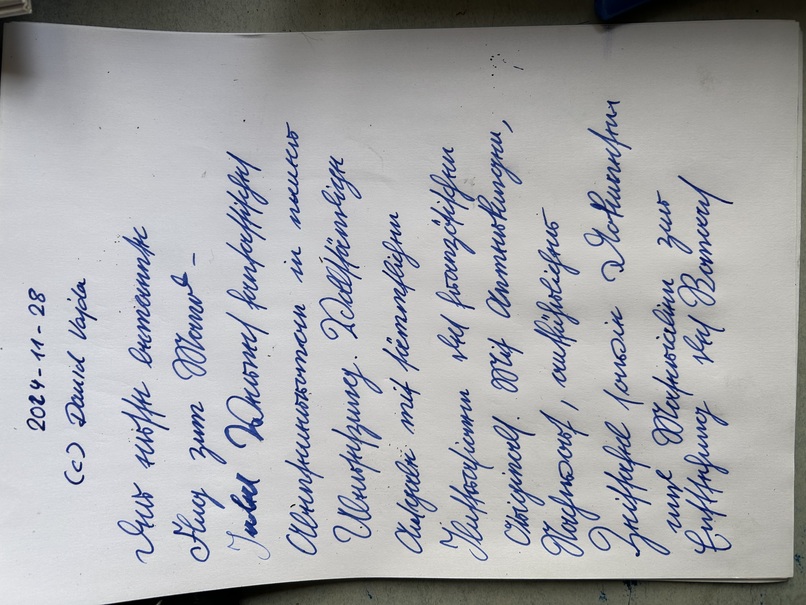 2024-11-28
(c) David Vajda
Der erste bemannte
Flug zum Mond –
Jules Vernes fantastischer
Abenteuerroman in neuer
Übersetzung. Vollständige
Ausgabe mit sämtlichen
Illustrationen des französischen
Originals. Mit Anmerkungen,
Nachwort, ausführlicher
Zeittafel sowie Dokumenten
und Materialien zur
Entstehung des Romans